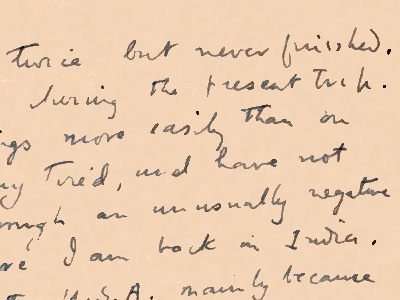 twice but never finished.
during the present trip.
ngs more easily than on
ny tired, and have not
through an unusually negative
I am back in India.
U.S.A. mainly because